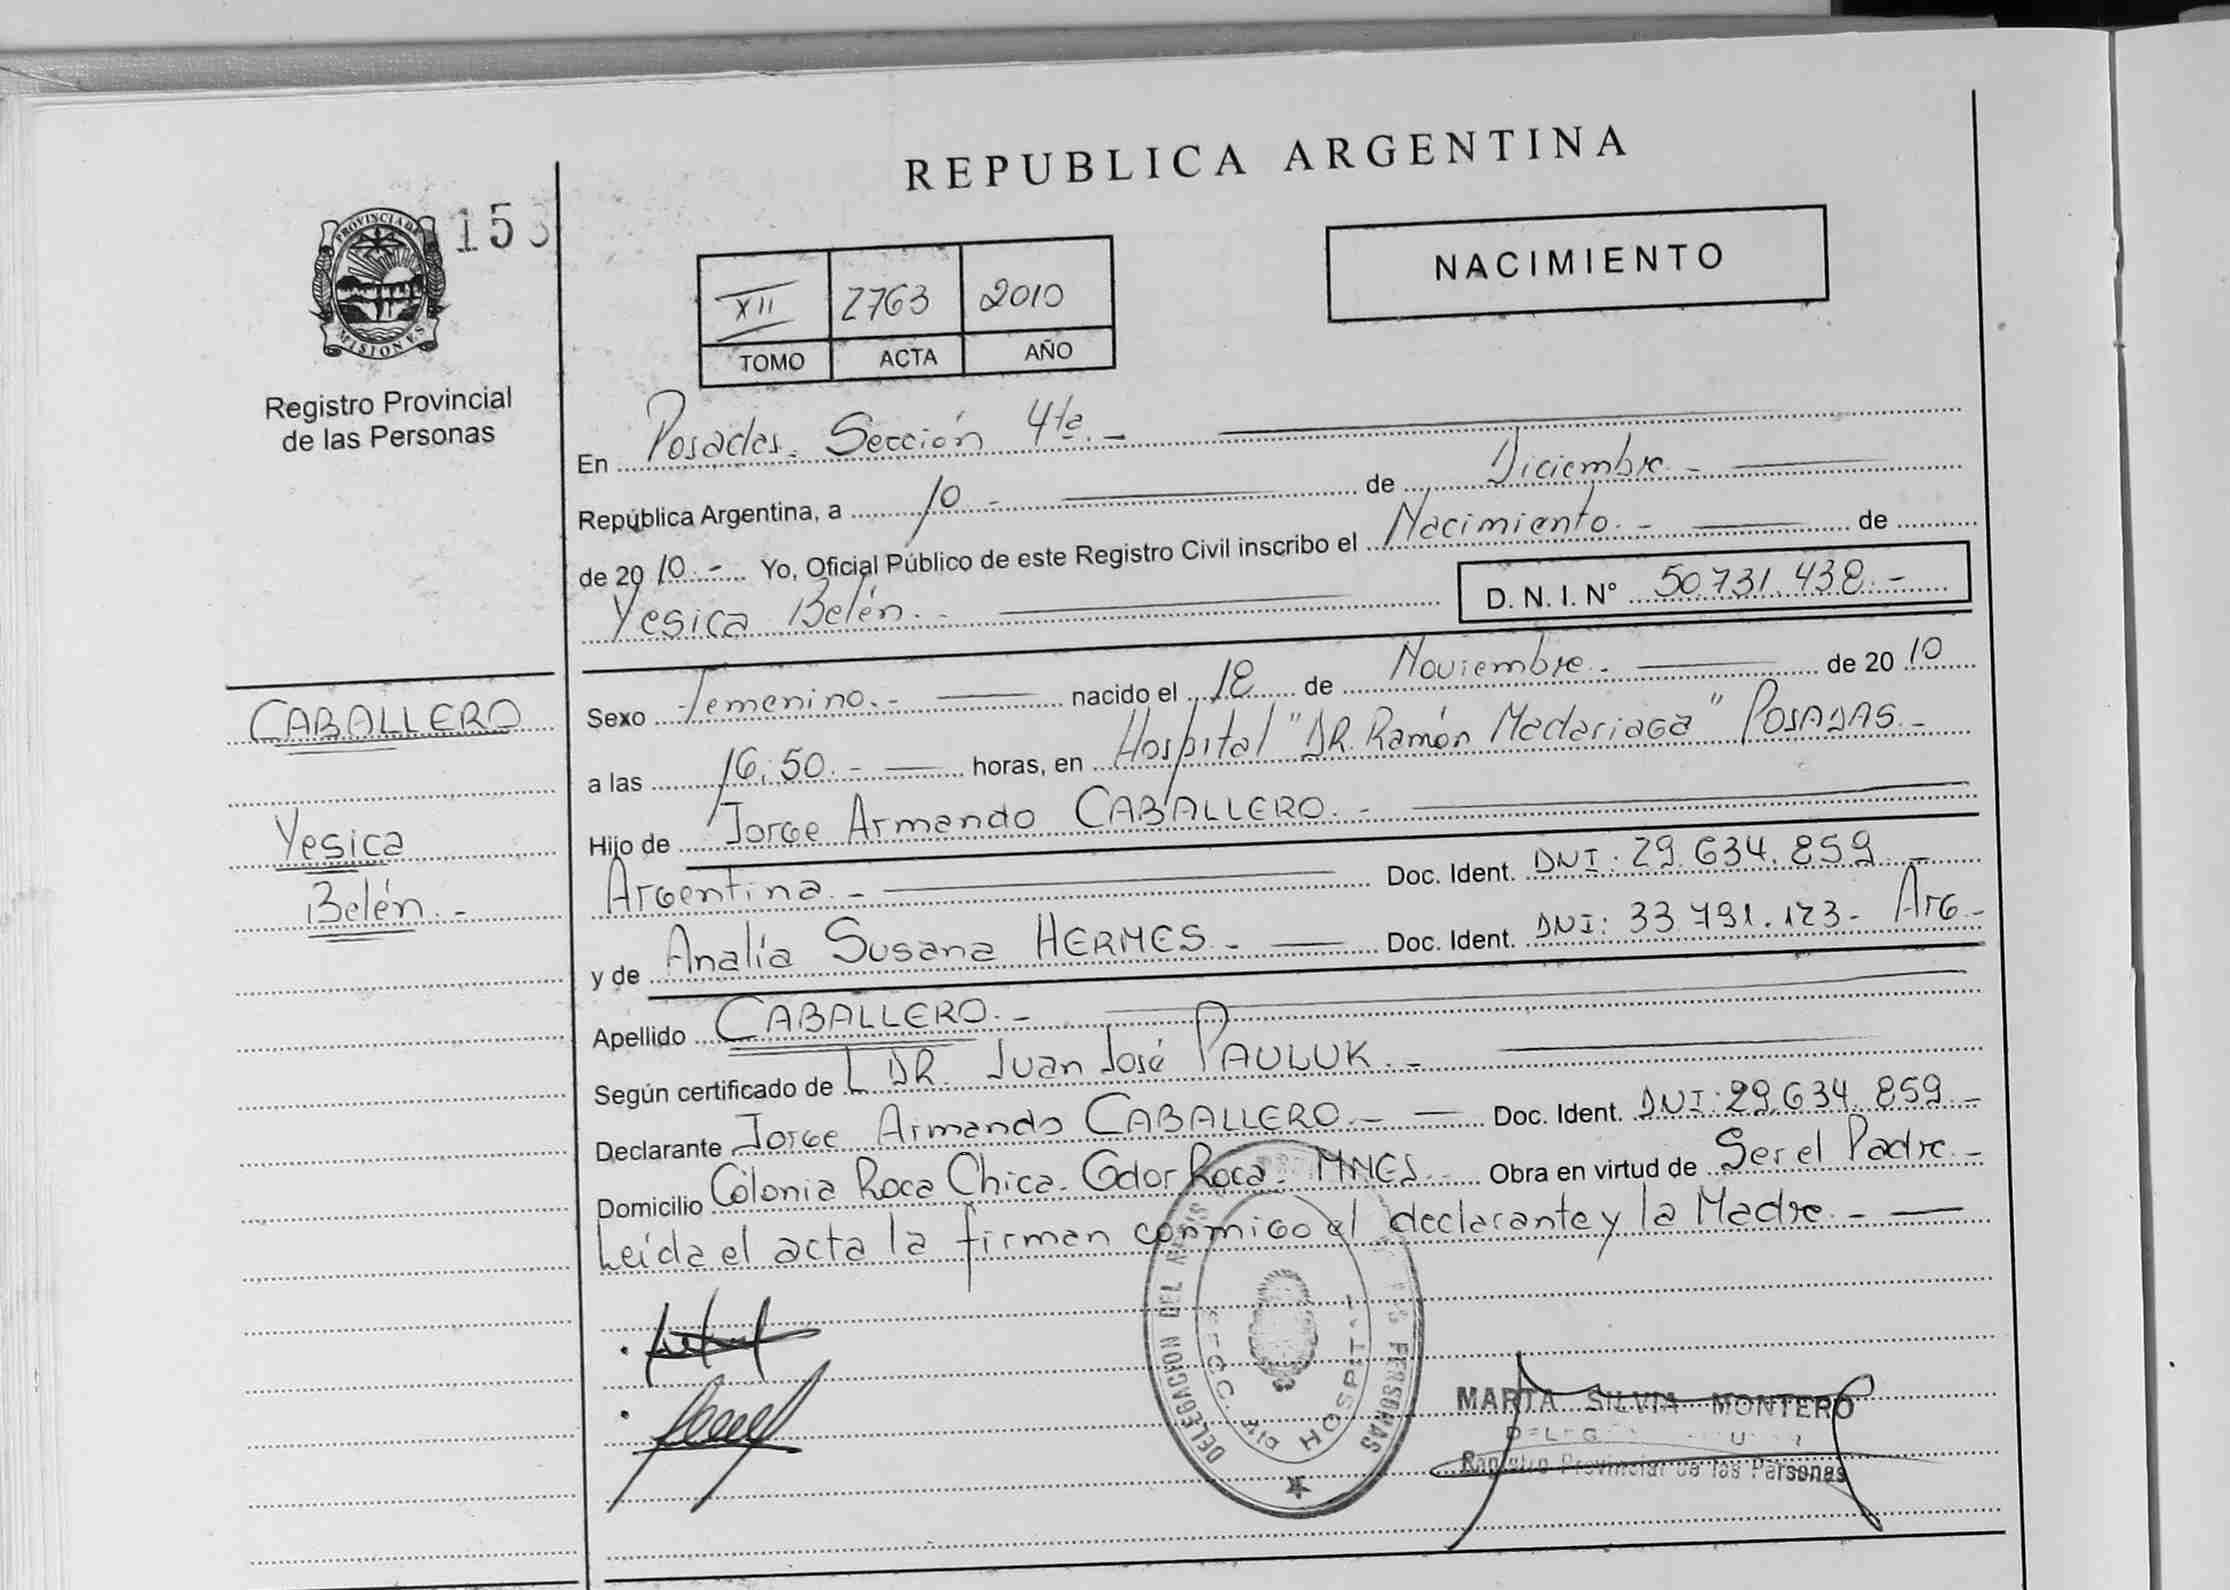 REPUBLICA ARGENTINA
PROVINCIA DE
MISIONES
153
Registro Provincial
de las Personas
XII 2763 2010
TOMO ACTA AÑO
NACIMIENTO
En Posadas. Sección 4ta.-
República Argentina, a 10.- de Diciembre.-
de 2010.- Yo, Oficial Público de este Registro Civil inscribo el Nacimiento.- de
Yesica Belén.- D. N. I. Nº 50.731.438.-
CABALLERO
Yesica
Belén.-
Sexo Femenino.- nacido el 18 de Noviembre.- de 2010
a las 16,50.- horas, en Hospital "DR. Ramón Madariaga" POSADAS.-
Hijo de Jorge Armando CABALLERO.-
Argentina.- Doc. Ident. DNI: 29.634.859.-
y de Analía Susana HERMES.- Doc. Ident. DNI: 33.791.123- Arg.-
Apellido CABALLERO.-
Según certificado de DR. Juan José PAULUK.-
Declarante Jorge Armando CABALLERO.- Doc. Ident. DNI: 29.634.859.-
Domicilio Colonia Roca Chica. Gdor Roca. MNES.- Obra en virtud de Ser el Padre.-
Leída el acta la firman conmigo el declarante y la Madre.-
DELEGACION DEL PERSONAS
SECC. 4ta HOSPITAL
MARTA SILVIA MONTERO
Registro Provincial de las Personas